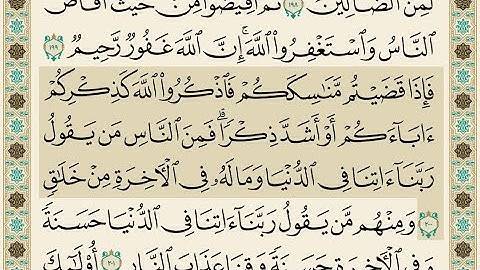 لَمِنَ ٱلضَّآلِّينَ ١٩٨ ثُمَّ أَفِيضُوا۟ مِنْ حَيْثُ أَفَاضَ
ٱلنَّاسُ وَٱسْتَغْفِرُوا۟ ٱللَّهَ ۚ إِنَّ ٱللَّهَ غَفُورٌ رَّحِيمٌ ١٩٩
فَإِذَا قَضَيْتُم مَّنَـٰسِكَكُمْ فَٱذْكُرُوا۟ ٱللَّهَ كَذِكْرِكُمْ
ءَابَآءَكُمْ أَوْ أَشَدَّ ذِكْرًا ۗ فَمِنَ ٱلنَّاسِ مَن يَقُولُ
رَبَّنَآ ءَاتِنَا فِى ٱلدُّنْيَا وَمَا لَهُۥ فِى ٱلْـَٔاخِرَةِ مِنْ خَلَـٰقٍ
٢٠٠ وَمِنْهُم مَّن يَقُولُ رَبَّنَآ ءَاتِنَا فِى ٱلدُّنْيَا حَسَنَةً
وَفِى ٱلْـَٔاخِرَةِ حَسَنَةً وَقِنَا عَذَابَ ٱلنَّارِ ٢٠١ أُو۟لَـٰٓئِكَ